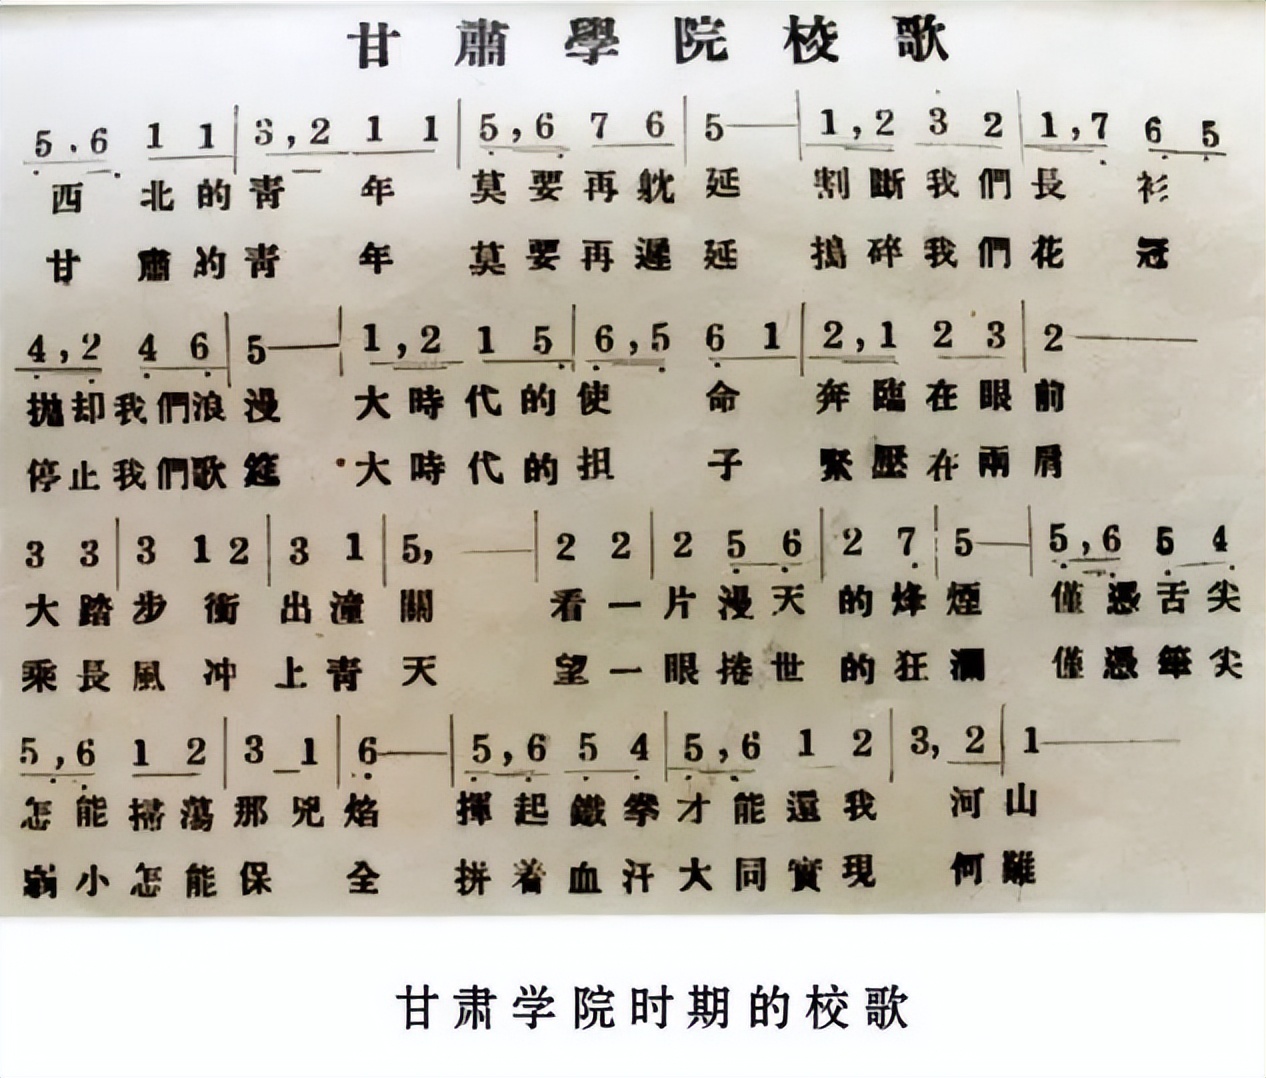 甘肅學院校歌
5. 6 1 1 | 3, 2 1 1 | 5, 6 7 6 | 5— | 1, 2 3 2 | 1, 7 6 5
西北的青年 莫要再躭延 割斷我們長衫
甘肅的青年 莫要再遲延 搗碎我們花冠
4, 2 4 6 | 5— | 1, 2 1 5 | 6, 5 6 1 | 2, 1 2 3 | 2—
拋却我們浪漫 大時代的使命 奔臨在眼前
停止我們歌筵 大時代的担子 緊壓在兩肩
3 3 | 3 1 2 | 3 1 | 5, — | 2 2 | 2 5 6 | 2 7 | 5— | 5, 6 5 4
大踏步衝出潼關 看一片漫天的烽煙 僅憑舌尖
乘長風冲上青天 望一眼捲世的狂瀾 僅憑筆尖
5, 6 1 2 | 3 1 | 6— | 5, 6 5 4 | 5, 6 1 2 | 3, 2 | 1—
怎能掃蕩那兇焰 揮起鐵拳才能還我河山
弱小怎能保全 拼着血汗大同實現何難
甘肃学院时期的校歌